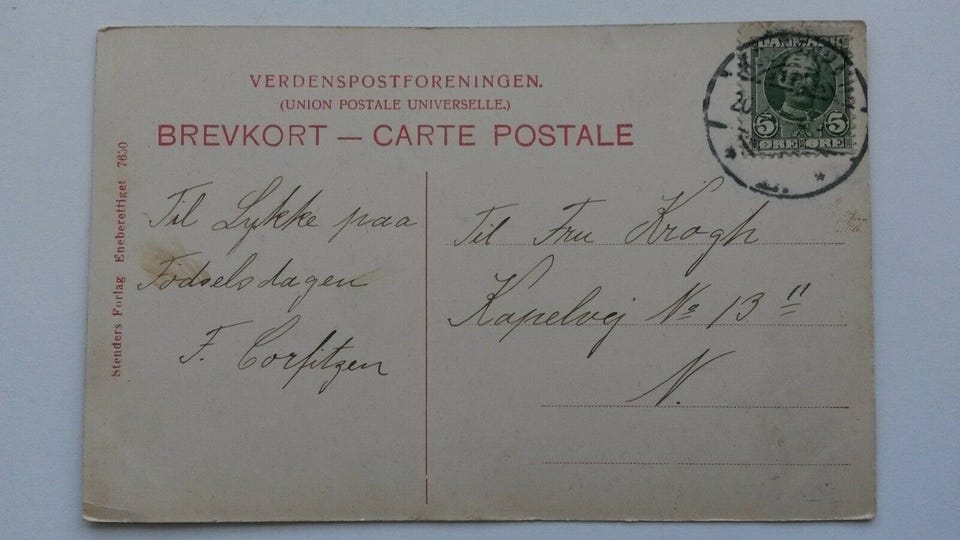 VERDENSPOSTFORENINGEN.
(UNION POSTALE UNIVERSELLE.)
BREVKORT — CARTE POSTALE
DANMARK
5 5
ØRE ØRE
20
Stenders Forlag Eneberettiget 7650
Til Lykke paa
Födselsdagen
F. Corfitzen
Til Fru Krogh
Kapelvej No 13 II
N.